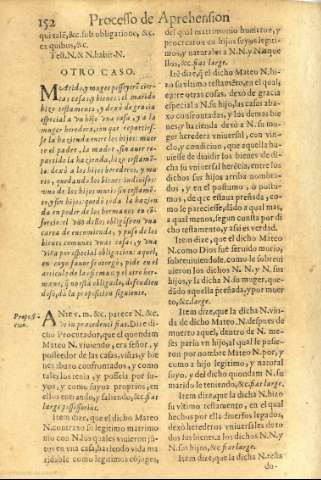 152 Processo de Aprehension
qui talē, &c. sub obligatione, &c.
ex quibus, &c.
Test. N. & N. habit. N.
OTRO CASO.
MArido, y muger posseyerō cier-
tas casas, y bienes: el marido
hizo testamento, y dexo de gracia
especial a vn hijo vna casa, y a la
muger heredera, con que repartiesse
la hazienda entre los hijos: muer
to el padre, la madre, sin auer re-
partido la hazienda, hizo testamē-
to. dexò a los hijos herederos, y mu-
rio, quedando los bienes
no de los hijos murio sin testamē-
to, y sin hijos. quedò toda la hazien
da en poder de los hermanos
de ellos
carea de encomienda, y
bienes comunes vnas casas, y vna
viña por especial obligacion: aquel,
en cuyo fauor se otorgò, pide en el
articulo de la firma; y el otro herma-
no, q̃ no esta obligado, defendien
do, da la proposicion siguiente.
Proposi-
cion.
ANte v. m. &c. parece N. &c.
Dize dicho
Procurador, que el quondam
Mateo N. viuiendo, era señor, y
posseedor de las casas, viñas, y bie
nes abaxo confrontados, y como
tales los tenia, y posseìa por su-
yos, y como suyos proprios, en
ellos entrando, y saliendo, &c. fiat
large possessoriū.
Item dize, que el dicho Mateo
N. contraxo su legitimo matrimo
nio con N. los quales viuieron jū-
tos en vna casa, haziendo vida ma
ridable como legitimos cōjuges,
del qual matrimonio huuieron, y
procrearon en hijos suyos legiti-
mos, y naturales a N. N. y N. aque
llos, &c. fiat large.
Itē dize, q̃ el dicho Mateo N. hi-
zo su vltimo testamēto, en el qual,
entre otras cosas, dexò de gracia
especial a N. su hijo, las casas aba-
xo confrontadas, y las demas bie
nes, y hazienda dexò a N. su mu-
ger heredera vniuersal, con vin-
clo, y condicion, que aquella hu-
uiesse de diuidir los bienes de di-
cha su vniuersal herēcia, entre los
dichos sus hijos arriba nombra-
dos, y en el postumo, ò postu-
mos, de que estaua preñada, co-
mo le pareciesse, dādo a qual mas,
a qual menos, segun consta por di
cho testamento, y assi es verdad.
Item dize, que el dicho Mateo
N. como Dios fue seruido muriò,
sobreuiuiendole, como le sobreui
uieron los dichos N. N. y N. sus
hijos, y la dicha N. su muger, que-
dādo aquella preñada, y por muer
to, &c. large.
Item dize, que la dicha N. viu-
da de dicho Mateo N. despues de
muerto aquel, dentro de N. me-
ses pariò vn hijo, al qual le pusie-
ron por nombre Mateo N. por, y
como a hijo legitimo, y natural
suyo, y del dicho quondam N. su
marido le teniendo, &c. fiat large.
Item dize, que la dicha N. hizo
su vltimo testamento, en el qual
hechos por ella diuersos legados,
dexò herederos vniuersales de to-
dos sus bienes a los dichos N. N. y
N. sus hijos, &c. fiat large.
Item dize, que la dicha N. testa
do-